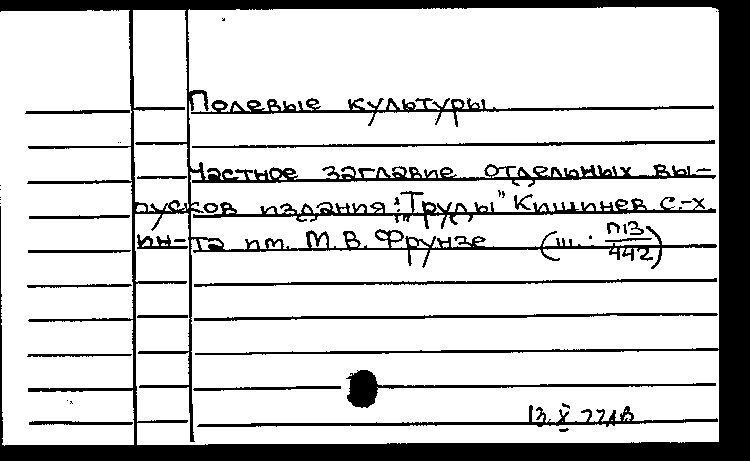 Полевые культуры.
Частное заглавие отдельных вы-
пусков издания: "Труды" Кишинев с.-х.
ин-та им. М. В. Фрунзе (Ш. П13/442)
13.X.77